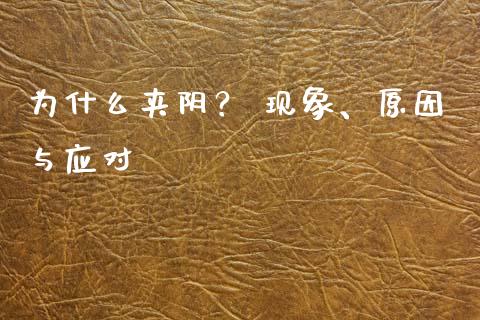 为什么夹阴？ 现象、原因
与应对